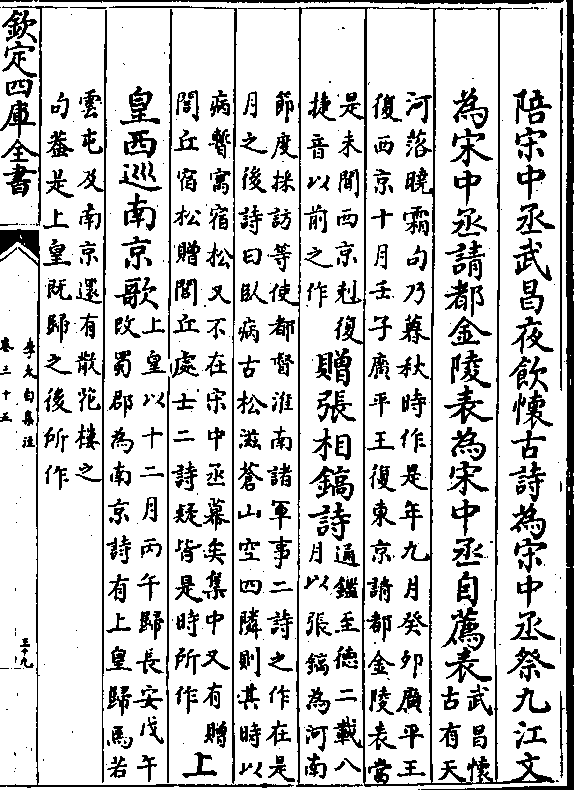 陪宋中丞武昌夜飲懷古詩為宋中丞祭九江文
為宋中丞請都金陵表為宋中丞自薦表
武昌懷
古有天
河落曉霜句乃暮秋時作是年九月癸卯廣平王
復西京十月壬子廣平王復東京請都金陵表當
是未聞西京剋復
捷音以前之作
贈張相鎬詩
通鑑至德二載八
月以張鎬為河南
節度採訪等使都督淮南諸軍事二詩之作在是
月之後詩曰臥病古松滋蒼山空四隣則其時以
病暫寓宿松又不在宋中丞幕矣集中又有贈
閭丘宿松贈閭丘處士二詩疑皆是時所作
上
皇西巡南京歌
上皇以十二月丙午歸長安戊午
改蜀郡為南京詩有上皇歸馬若
雲屯及南京還有散花樓之
句葢是上皇既歸之後所作
欽定四庫全書
李太白集注
卷三十五
三十九